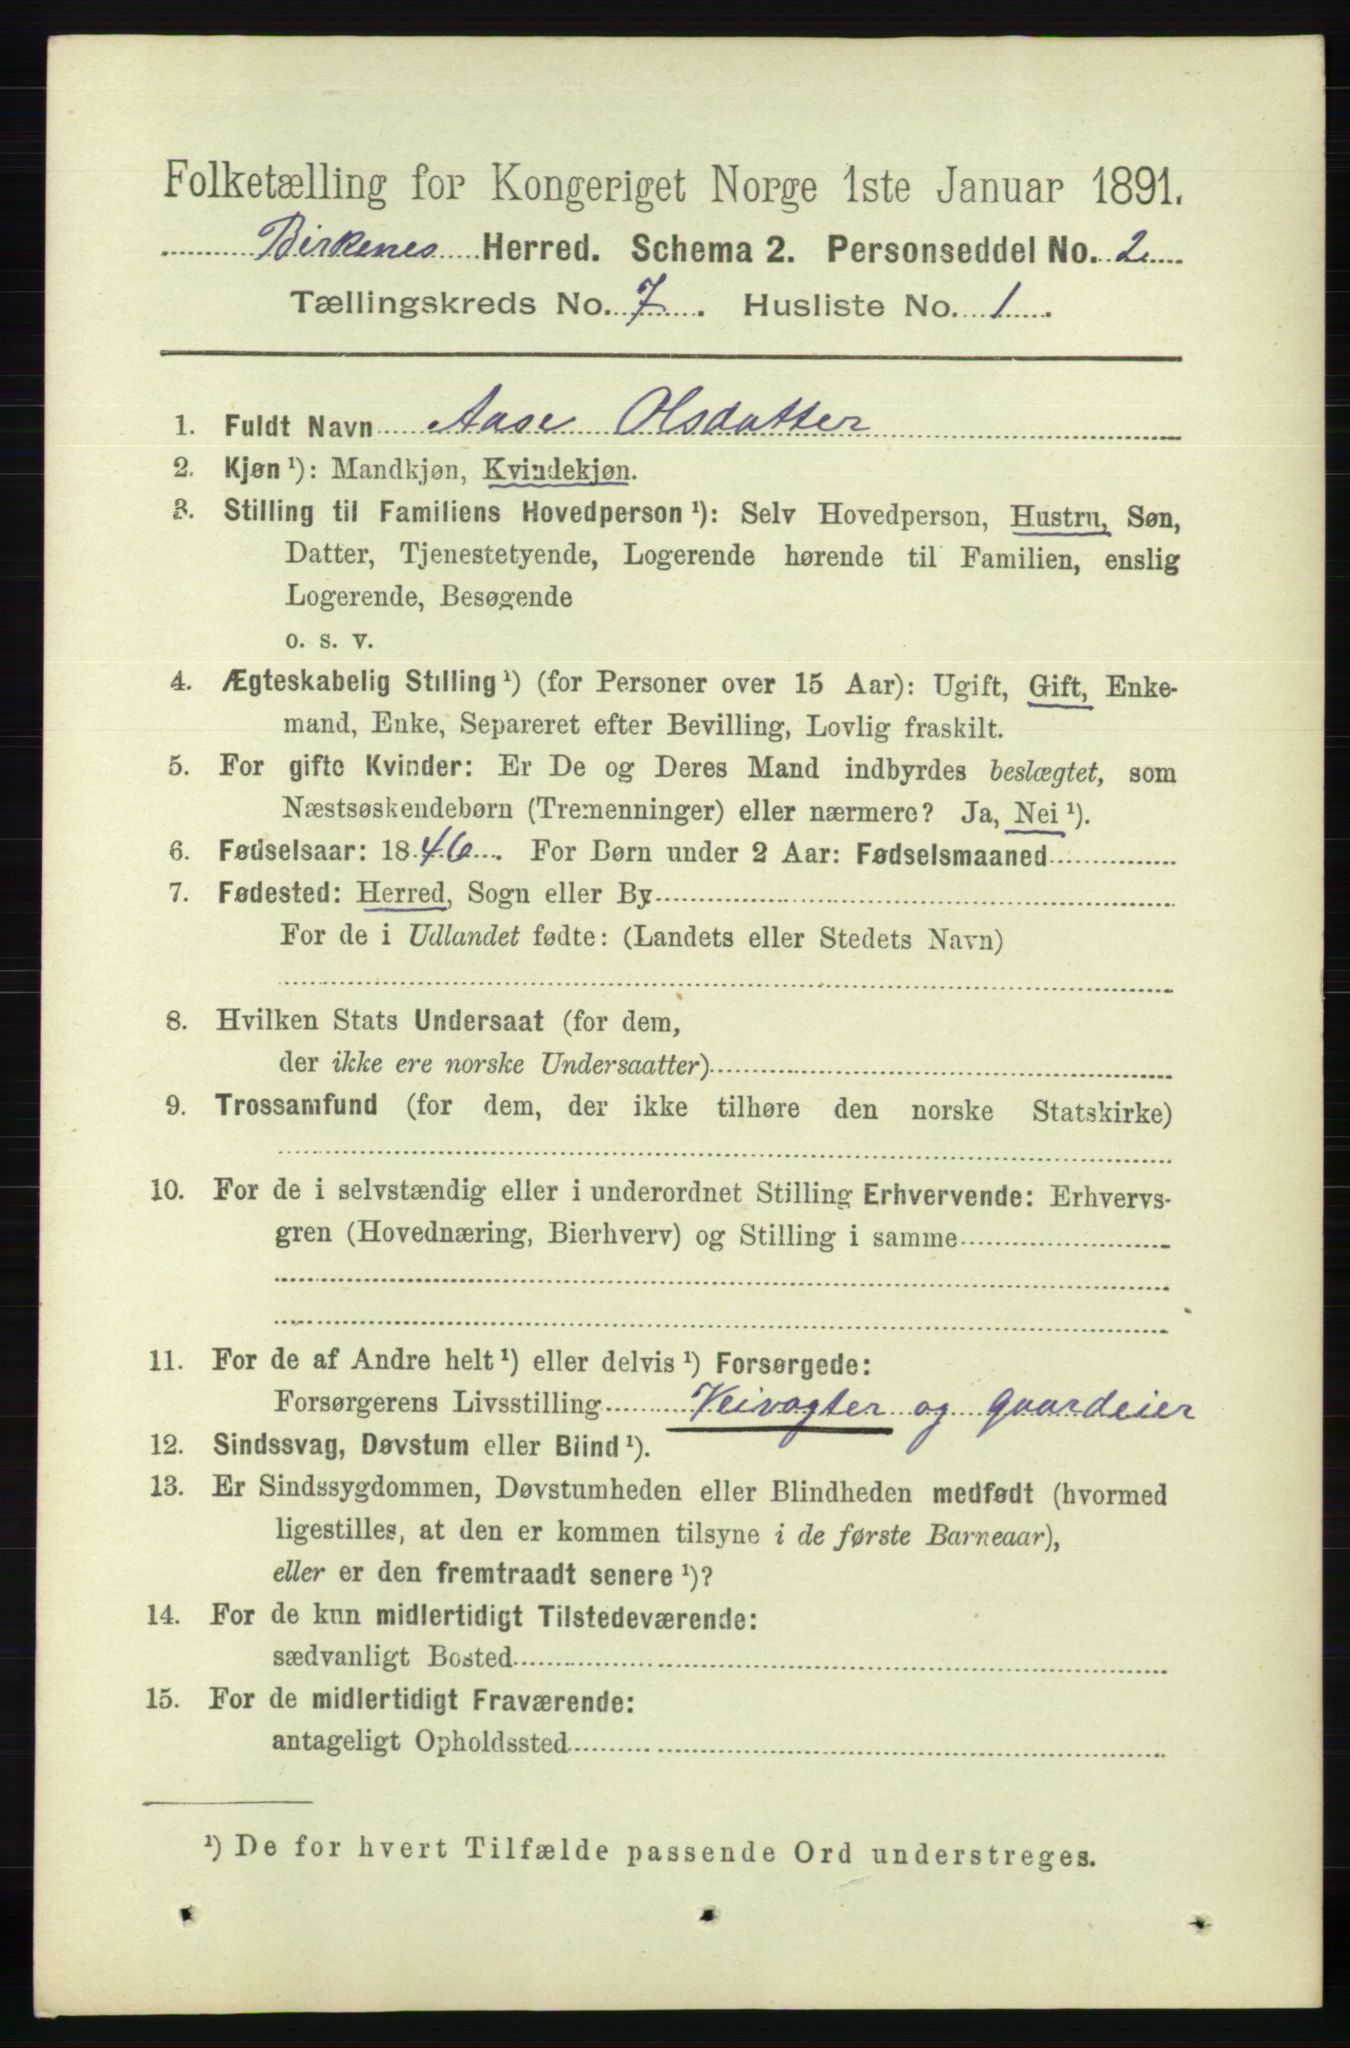 Folketælling for Kongeriget Norge 1ste Januar 1891.
Birkenes Herred. Schema 2. Personseddel No. 2
Tællingskreds No. 7. Husliste No. 1.
1. Fuldt Navn Aase Olsdatter
2. Kjøn ¹): Mandkjøn, Kvindekjøn.
3. Stilling til Familiens Hovedperson ¹): Selv Hovedperson, Hustru, Søn,
Datter, Tjenestetyende, Logerende hørende til Familien, enslig
Logerende, Besøgende
o. s. v.
4. Ægteskabelig Stilling ¹) (for Personer over 15 Aar): Ugift, Gift, Enke-
mand, Enke, Separeret efter Bevilling, Lovlig fraskilt.
5. For gifte Kvinder: Er De og Deres Mand indbyrdes beslægtet, som
Næstsøskendebørn (Tremenninger) eller nærmere? Ja, Nei ¹).
6. Fødselsaar: 1846. For Børn under 2 Aar: Fødselsmaaned
7. Fødested: Herred, Sogn eller By
For de i Udlandet fødte: (Landets eller Stedets Navn)
8. Hvilken Stats Undersaat (for dem,
der ikke ere norske Undersaatter)
9. Trossamfund (for dem, der ikke tilhøre den norske Statskirke)
10. For de i selvstændig eller i underordnet Stilling Erhvervende: Erhvervs-
gren (Hovednæring, Bierhverv) og Stilling i samme
11. For de af Andre helt ¹) eller delvis ¹) Forsørgede:
Forsørgerens Livsstilling Veivogter og gaardeier
12. Sindssvag, Døvstum eller Blind ¹).
13. Er Sindssygdommen, Døvstumheden eller Blindheden medfødt (hvormed
ligestilles, at den er kommen tilsyne i de første Barneaar),
eller er den fremtraadt senere ¹)?
14. For de kun midlertidigt Tilstedeværende:
sædvanligt Bosted
15. For de midlertidigt Fraværende:
antageligt Opholdssted
¹) De for hvert Tilfælde passende Ord understreges.